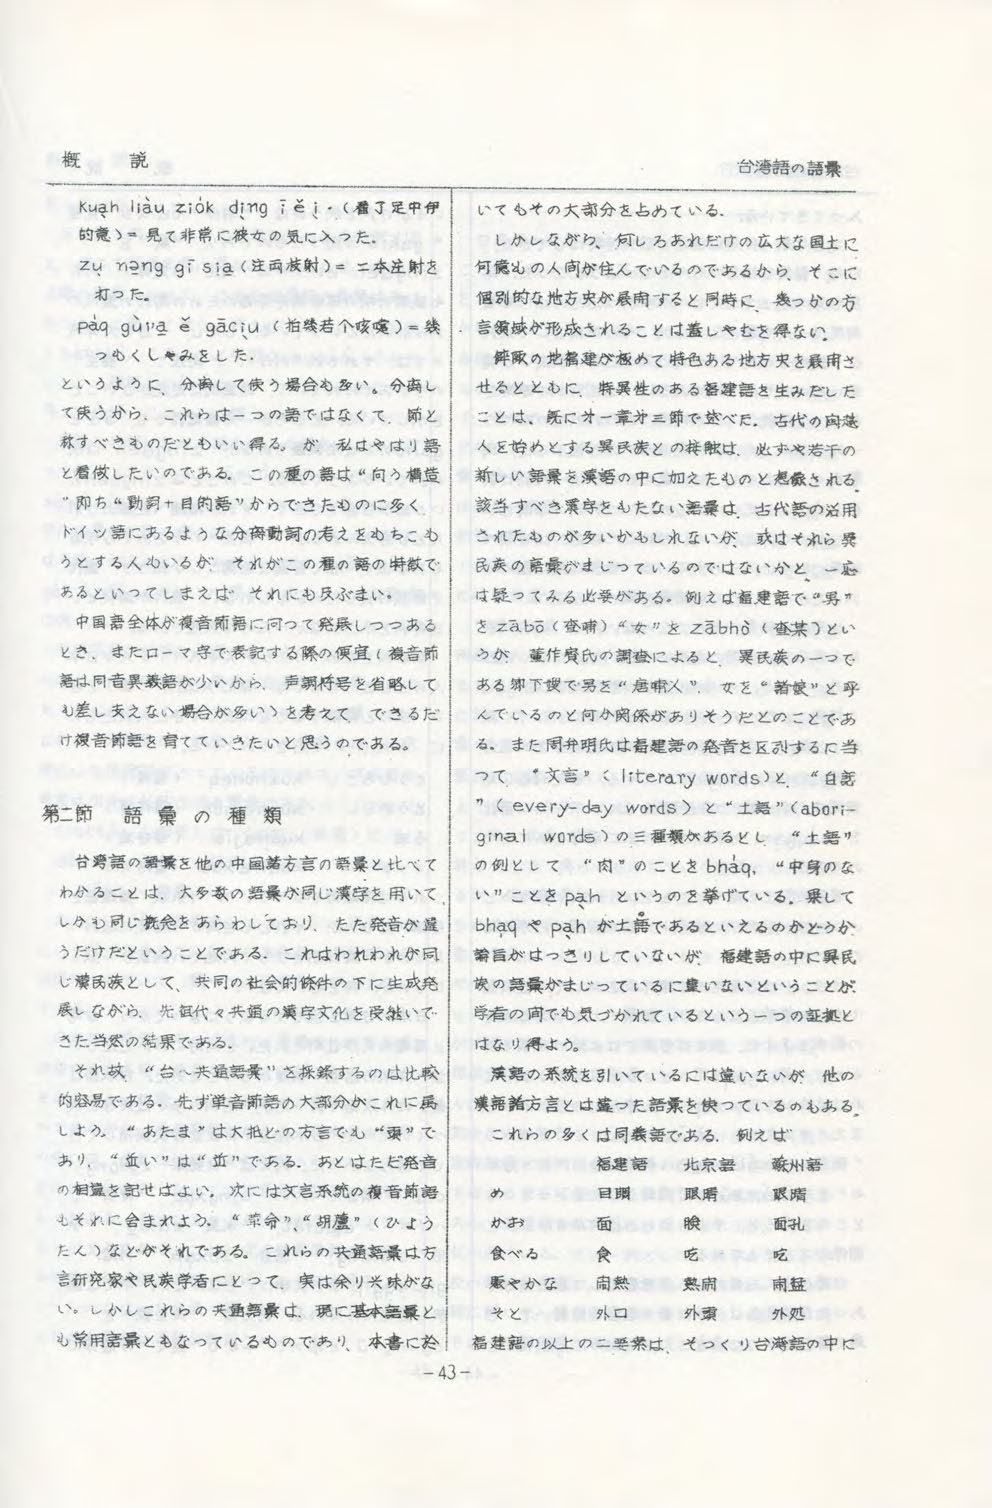 概　説
台湾語の語彙
Kuạh liàu ziók dịng ī ě ị・(看了足中伊
的意)= 見て非常に彼女の気に入った。
Zụ nəng gī siạ (注両枝射)= 二本注射を
打った。
páq gùiạ ě gāciụ (拍幾若个咳嚏)= 幾
つもくしゃみをした.
というように、分離して使う場合も多い。分離し
て使うから、これらは一つの語ではなくて、節と
称すべきものだともいい得る。が、私はやはり語
と看做したいのである。この種の語は“向う構造
”即ち“動詞+目的語”からできたものに多く、
ドイツ語にあるような分離動詞の考えをもちこも
うとする人もいるが、それがこの種の語の特徴で
あるといってしまえば、それにも及ぶまい。
中国語全体が複音節語に向って発展しつつある
とき、またローマ字で表記する際の便宜(複音節
語は同音異義語が少いから、声調符号を省略して
も差し支えない場合が多い)を考えて、できるだ
け複音節語を育てていきたいと思うのである。
第二節　語彙の種類
台湾語の語彙を他の中国諸方言の語彙と比べて
わかることは、大多数の語彙が同じ漢字を用いて、
しかも同じ概念をあらわしており、ただ発音が違
うだけだということである. これはわれわれが同
じ漢民族として、共同の社会的條件の下に生成発
展しながら、先祖代々共通の漢字文化を受継いで
きた当然の結果である.
それ故、“台〜共通語彙”を採録するのは比較
的容易である. 先ず単音節語の大部分がこれに属
しよう. “あたま”は大抵どの方言でも“頭”で
あり、“近い”は“近”である. あとはただ発音
の相違を記せばよい. 次には文言系統の複音節語
もそれに含まれよう. “革命”、“胡蘆”(ひょう
たん)などがそれである。これらの共通語彙は方
言研究家や民族学者にとって、実は余り興味がな
い。しかしこれらの共通語彙は、現に基本語彙と
も常用語彙ともなっているものであり、本書に於
いてもその大部分を占めている.
しかしながら、何しろあれだけの広大な国土に
何億もの人間が住んでいるのであるから、そこに
個別的な地方史が展開すると同時に、幾つかの方
言領域が形成されることは蓋しやむを得ない.
僻陬の地福建が極めて特色ある地方史を展開さ
せるとともに、特異性のある福建語を生みだした
ことは、既に才一章才三節で述べた. 古代の閩越
人を始めとする異民族との接触は、必ずや若干の
新しい語彙を漢語の中に加えたものと想像される。
該当すべき漢字をもたない語彙は、古代語の沿用
されたものが多いかもしれないが、或はそれら異
民族の語彙がまじっているのではないかと、一応
は疑ってみる必要がある. 例えば福建語で“男”
を zābō (查哺)“女”を zābhò (查某)とい
うが、董作賓氏の調査によると、異民族の一つで
ある卸下媛で男を“唐哺乂”、女を“諸娘”と呼
んでいるのと何か関係がありそうだとのことであ
る. また周弁明氏は福建語の発音を区別するに当
って、“文言”(literary words)と、“白話
”(every-day words)と“土語”(abori-
ginal words)の三種類があるとし、“土語”
の例として、“肉”のことを bháq, “中身のな
い”ことを pạh というのを挙げている. 果して
bhaq や pạh が土語であるといえるのかどうか
論旨がはっきりしていないが、福建語の中に異民
族の語彙がまじっているに違いないということが、
学者の間でも気づかれているという一つの証拠と
はなり得よう。
漢語の系統を引いているには違いないが、他の
漢語諸方言とは違った語彙を使っているのもある。
これらの多くは同義語である. 例えば
福建語　北京語　蘇州語
め　目睭　眼睛　眼睛
かお　面　臉　面孔
食べる　食　吃　吃
賑やかな　鬧熱　熱鬧　鬧猛
そと　外口　外頭　外処
福建語の以上の二要素は、そっくり台湾語の中に
-43-